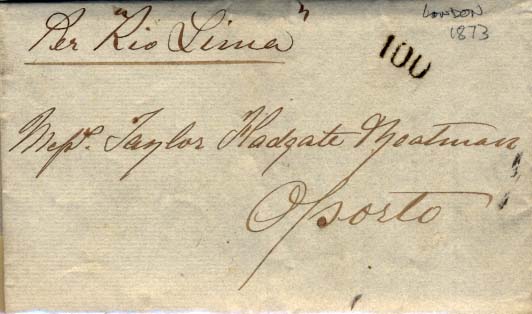 Per "Rio Lima"
LONDON
1873
100
Messrs. Taylor Fladgate Yeatman
Oporto